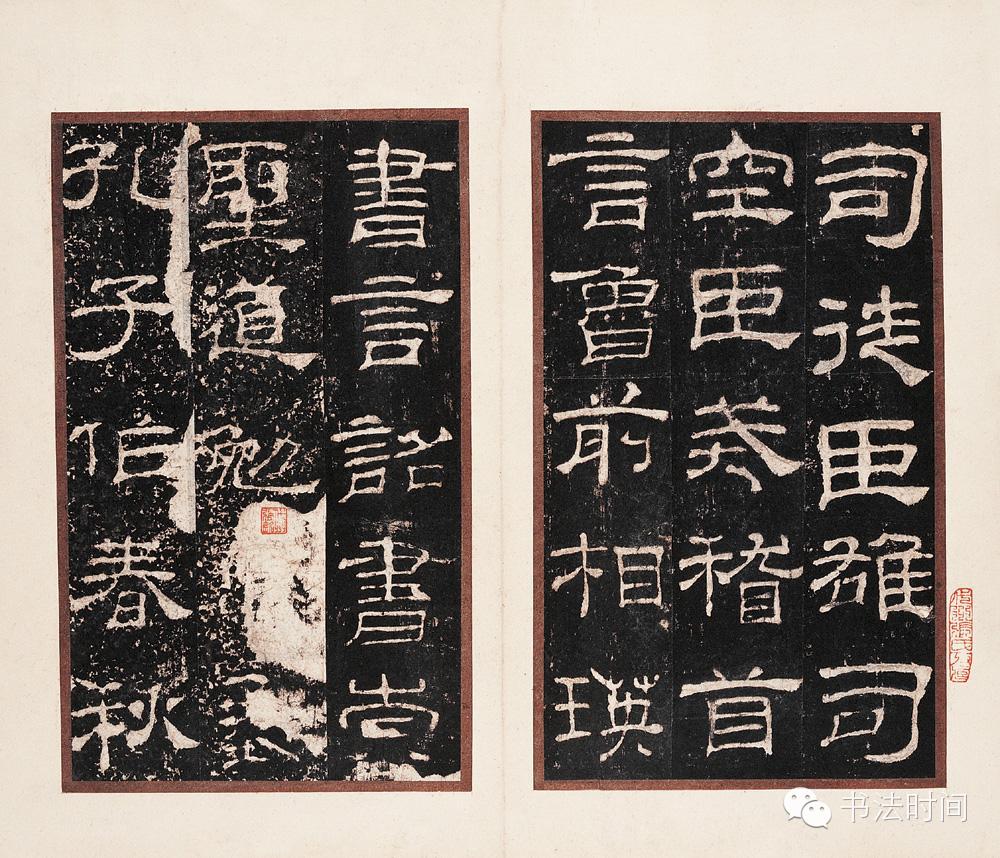 司徒臣雄司
空臣戒稽首
言魯前相瑛
書言詔書崇
聖道勉
孔子作春秋
书法时间